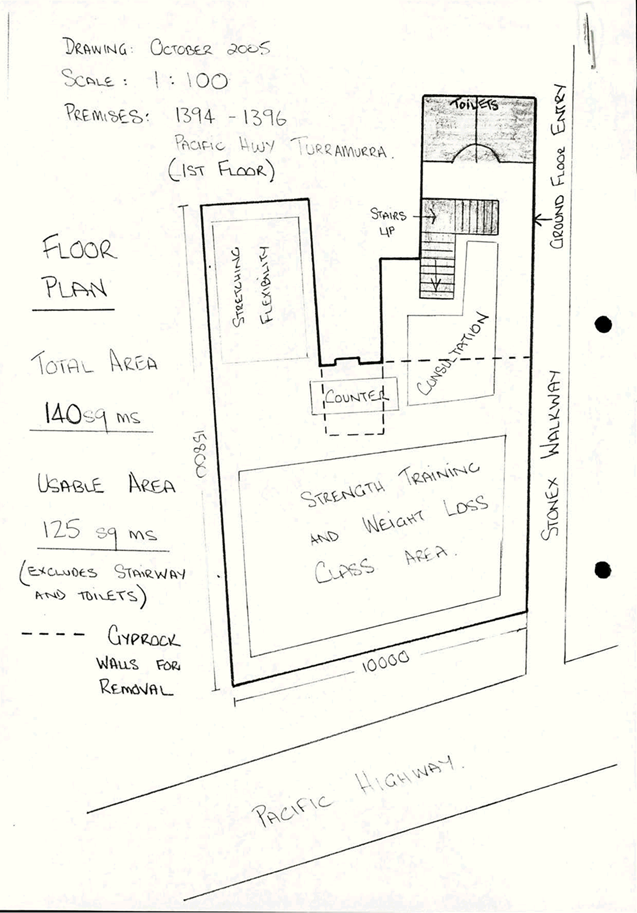 DRAWING: OCTOBER 2005
SCALE: 1:100
PREMISES: 1394 - 1396
PACIFIC HWY TURRAMURRA.
(1ST FLOOR)
TOILETS
GROUND FLOOR ENTRY
STAIRS
UP
FLOOR
PLAN
STRETCHING
FLEXIBILITY
TOTAL AREA
140 sq ms
CONSULTATION
COUNTER
STONEX WALKWAY
15800
USABLE AREA
125 sq ms
(EXCLUDES STAIRWAY
AND TOILETS)
STRENGTH TRAINING
AND WEIGHT LOSS
CLASS AREA.
---- GYPROCK
WALLS FOR
REMOVAL
10000
PACIFIC HIGHWAY.